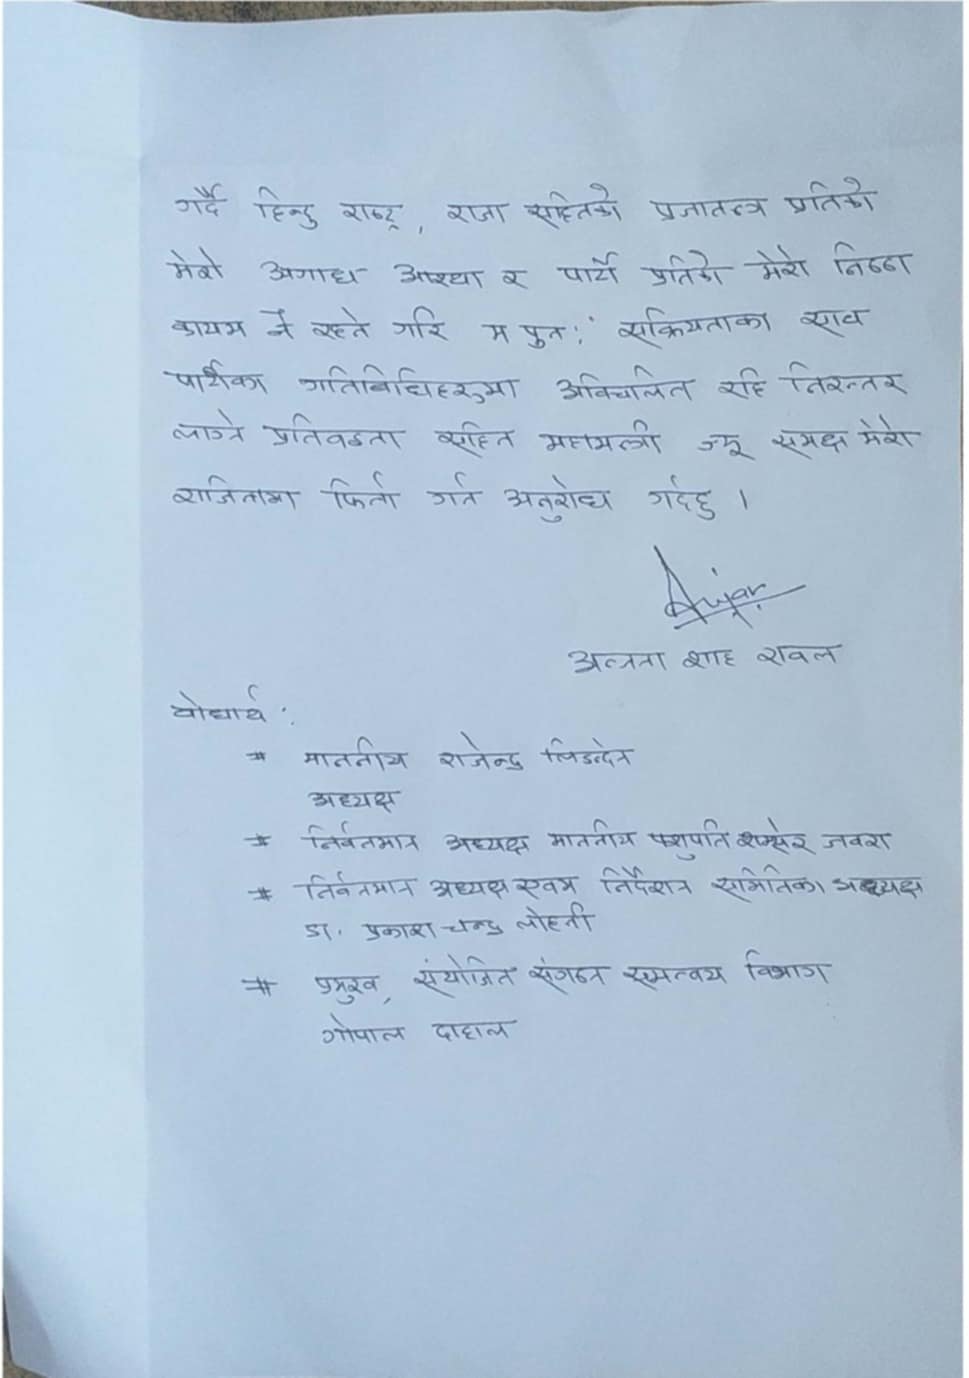 गर्दै हिन्दु राष्ट्र, राजा सहितको प्रजातन्त्र प्रतिको
मेरो अगाध आस्था र पार्टी प्रतिको मेरो निष्ठा
कायम नै रहने गरि म पुनः सक्रियताका साथ
पार्टीका गतिबिधिहरुमा अविचलित रहि निरन्तर
लाग्ने प्रतिवद्धता सहित महामन्त्री ज्यू समक्ष मेरो
राजिनामा फिर्ता गर्न अनुरोध गर्दछु ।
अन्जना शाह रावल
वोधार्थ :
# माननीय राजेन्द्र लिङदेन
अध्यक्ष
# निर्वतमान अध्यक्ष माननीय पशुपति शम्सेर जवरा
# निर्वतमान अध्यक्ष एवम निर्देशन समितिका अध्यक्ष
डा. प्रकाश चन्द्र लोहनी
# प्रमुख, संयोजित संगठन समन्वय विभाग
गोपाल दाहाल